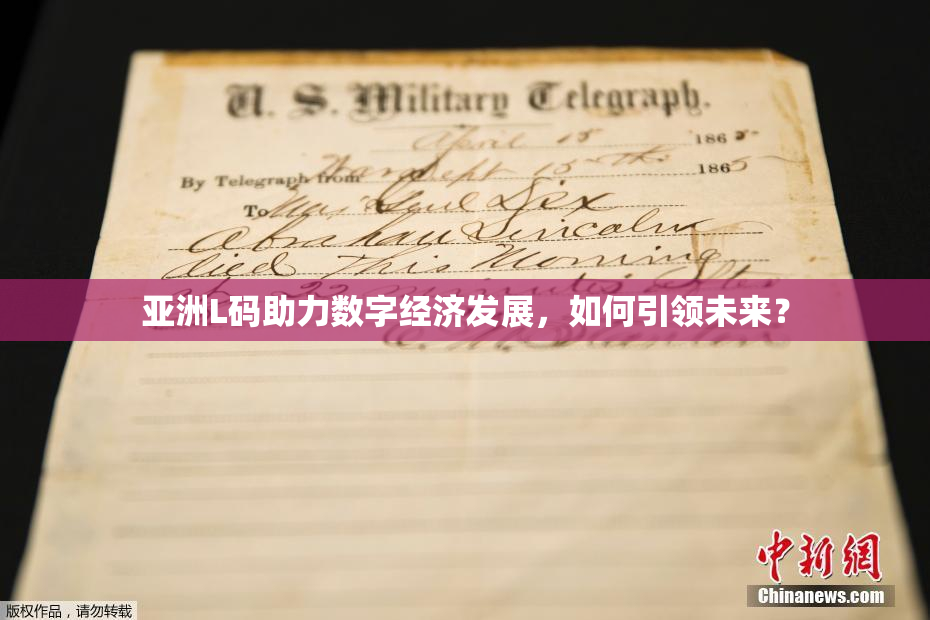 U. S. Military Telegraph.
April 15 1865
By Telegraph from War Dept 15th 1865
To Maj Genl Dix
Abraham Lincoln
died This Morning
at 22 minutes after
亚洲L码助力数字经济发展，如何引领未来？
E. M. Stanton
中新网
Chinanews.com
版权作品，请勿转载